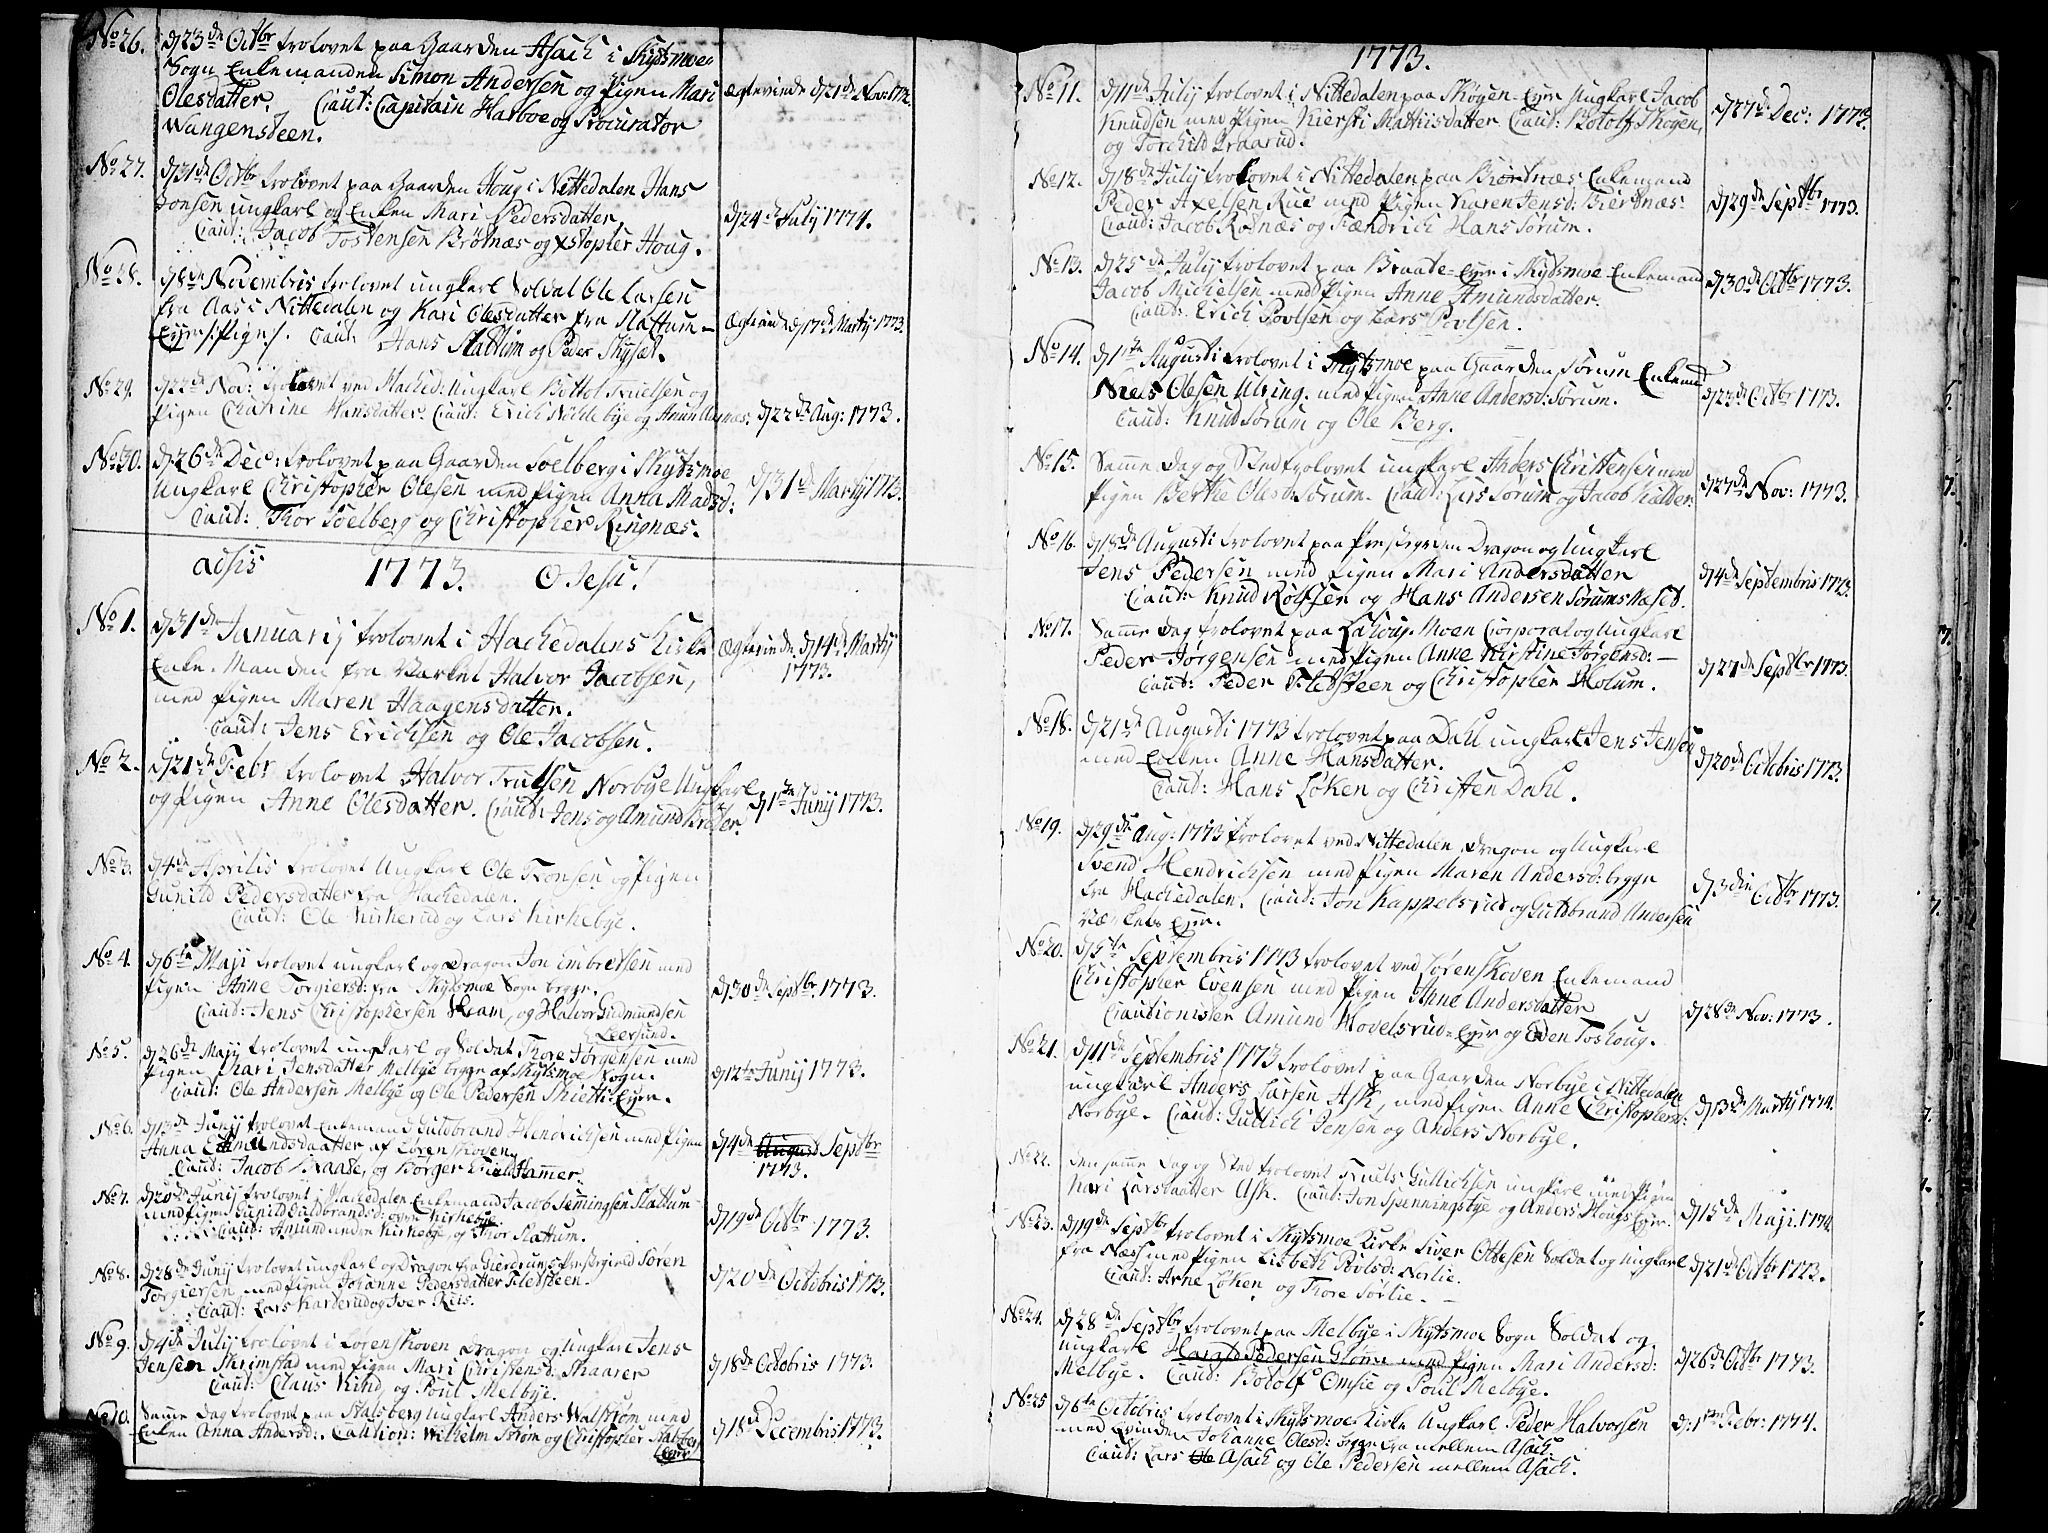 No 26. d 23de Octbr trolovet paa Gaarden Asach i Skydsmoe
Sogn Enkemanden Simon Andersen og Pigen Mari
Olesdatter. Caut: Capitain Harboe og Procurator
Wangensteen.
Ægteviede d 21de Nov: 1772.
No 27. d 31de Octbr trolovet paa Gaarden Houg i Nittedalen Hans
Jonsen ungkarl og Enken Mari Pedersdatter.
Caut: Jacob Tostensen Brøtnæs og Xstopher Houg.
d 24de July 1774.
No 28. d 8de Novembris trolovet ungkarl Soldat Ole Larsen
fra Aas i Nittedalen og Kari Olesdatter fra Slattum-
Eyer /: Pige :/. Caut: Hans Slattum og Peder Skyset.
Ægteviede d 17de Martij 1773.
No 29. d 22de Nov: trolovet ved Hached: Ungkarl Bottol Truelsen og
Pigen Chatrine Hansdatter. Caut: Erich Nordbye og
d 22de Aug: 1773.
No 30. d 26de Dec: trolovet paa Gaarden Soelberg i Skydsmoe
Ungkarl Christopher Olesen med Pigen Anna Madsd:
Caut: Thor Soelberg og Christopher Ringnæs.
d 31de Martij 1773.
adsis 1773. O Jesu!
No 1. d 31de Januarij trolovet i Hachedalens Kirke
Enke-Manden fra Værket Halvor Jacobsen,
med Pigen Maren Haagensdatter.
Caut: Jens Erichsen og Ole Jacobsen.
Ægteviede d 14de Martij
1773.
No 2. d 21de Febr trolovet Halvor Truelsen Norbye Ungkarl
og Pigen Anne Olesdatter. Caut: Jens og Amund Krøder.
d 1ste Junij 1773.
No 3. d 4de Aprilis trolovet Ungkarl Ole Tronsen og Pigen
Gunild Pedersdatter fra Hachedalen.
Caut: Ole Kirkerud og Lars Kirkebye.
No 4. d 6te Maji trolovet ungkarl og Dragon Jon Embretsen med
Pigen Anne Torgiersd: fra Skydsmoe Sogn begge.
Caut: Jens Christophersen Kram, og Halvor Gudmundsen
Leersund.
d 30de Septbr 1773.
No 5. d 26de Maji trolovet ungkarl og Soldat Thore Jørgensen med
Pigen Mari Jensdatter Melbye begge af Skydsmoe Sogn.
Caut: Ole Andersen Melbye og Ole Pedersen Skiette-Eyer.
d 12te Junij 1773.
No 6. d 13de Junij trolovet Enkemand Guldbrand Hendrichsen med Pigen
Anna Edmundsdaatter af Lørenskoven
Caut: Jacob Braate, og Borger Hammer.
d 4de August Septbr
1773.
No 7. d 20de Junij trolovet i Hachedalen Enkemand Jacob Semmingsen Slattum-
med Pigen Gunild Guldbrandsd: øvre Kirkebye.
Caut: Amund nedre Kirkebye, og Thor Slattum.
d 19de Octbr 1773.
No 8. d 28de Junij trolovet ungkarl og Dragon fra Gierdrums Præstegield Søren
Torgiersen med Pigen Johanne Pedersdatter Fieldsteen.
Caut: Lars Harderud og Iver Riis.
d 20de Octobris 1773.
No 9. d 4de July trolovet i Lørenskoven Dragon og Ungkarl Jens
Jensen Skrimstad med Pigen Mari Christensd: Skaarer
Caut: Claus Kind, og Poul Melbye.
d 18de Octobris 1773.
No 10. Samme Dag trolovet paa Stalsberg Ungkarl Anders Walstrøm med
Enken Anna Andersd: Caution: Wilhelm Strøm og Christopher
Eyer.
d 18de Decembris 1773.
1773.
No 11. d 11de July trolovet i Nittedalen paa Skøyen-Eyer Ungkarl Jacob
Knudsen med Pigen Kiersti Mathisdatter Caut: Botolf Skøyen,
og Torchild Braarud.
d 27de Dec: 1773.
No 12. d 18de July trolovet i Nittedalen paa Biørtnæs Enkemand
Peder Axelsen Rue med Pigen Karen Jensd: Biertnæs.
Caut: Jacob Rodnæs og Fændrich Hans Sørum.
d 29de Septbr 1773.
No 13. d 25de July trolovet paa Braate-Eyer i Skydsmoe Enkemand
Jacob Michelsen med Pigen Anne Amundsdatter.
Caut: Erich Povlsen og Lars Povlsen.
d 30de Octbr 1773.
No 14. d 1ste Augusti trolovet i Skydsmoe paa Gaarden Sørum Enkemd
Niels Olesen Ulring. med Pigen Anne Andersd: Sørum.
Caut: Knud Sørum og Ole Berg.
d 23de Octbr 1773.
No 15. Samme Dag og Sted trolovet ungkarl Anders Christensen med
Pigen Berthe Olesd: Sørum. Caut: Lars Sørum og Jacob Kalder.
d 27de Nov: 1773.
No 16. d 15de Augusti trolovet paa Prestegrden Dragon og Ungkarl
Jens Pedersen med Pigen Mari Andersdatter
Caut: Knud Rolfsen og Hans Andersen Sørumsnæset.
d 4de Septembris 1773.
No 17. Samme Dag trolovet paa Moen Corporal og Ungkarl
Peder Jørgensen med Pigen Anne Kirstine Jørgensd:-
Caut: Peder Fieldsteen og Christopher Holum.
d 27de Septbr 1773.
No 18. d 21de Augusti 1773 trolovet paa Dahl ungkarl Jens Jensen
med Enken Anne Hansdatter.
Caut: Hans Løken og Christen Dahl.
d 20de Octobris 1773.
No 19. d 29de Aug: 1773 trolovet ved Nittedalen, Dragon og Ungkarl
Svend Hendrichsen med Pigen Maren Andersd: begge
fra Hachedalen. Caut: Jon Kappelsrud og Guldbrand Andersen
Værkets Eyer.
d 3die Octbr 1773.
No 20. d 5te Septembris 1773 trolovet ved Lørenskoven Enkemand
Christopher Evensen med Pigen Anne Andersdatter
Cautionister Amund Hovelsrud-Eyer og Eden Toshoug.
d 28de Nov: 1773.
No 21. d 11de Septembris 1773 trolovet paa Gaarden Norbye i Nittedalen
ungkarl Anders Larsen Ask, med Pigen Anne Christophersd:
Norbye. Caut: Gullich Jensen og Anders Norbye.
d 13de Martij 1774.
No 22. Den samme Dag og Sted trolovet Truels Gullichsen ungkarl med Pigen
Kari Larsdaatter Ask. Caut: Jon Spenningsbye og Anders Hougs Eyer.
d 15de Maji 1774
No 23. d 19de Septbr trolovet i Skydsmoe Kirke Siver Ottesen Soldat og Ungkarl
fra Næss med Pigen Lisbeth Povlsd: Norlie.
Caut: Arne Løken og Thore Sørlie.
d 21de Octbr 1773.
No 24. d 28de Septbr trolovet paa Melbye i Skydsmoe Sogn Soldat og
ungkarl Harald Pedersen Glomn med Pigen Mari Andersd:
Melbye. Caut: Botolf Omsie og Poul Melbye.
d 26de Octbr 1773.
No 25 d 6te Octobris trolovet i Skydsmoe Kirke Ungkarl Peder Halvorsen
med Qvinden Johanne Olesd: begge fra mellem Asach.
Caut: Lars Ole Asach og Ole Pedersen mellem Asach.
d: 1ste Febr: 1774.